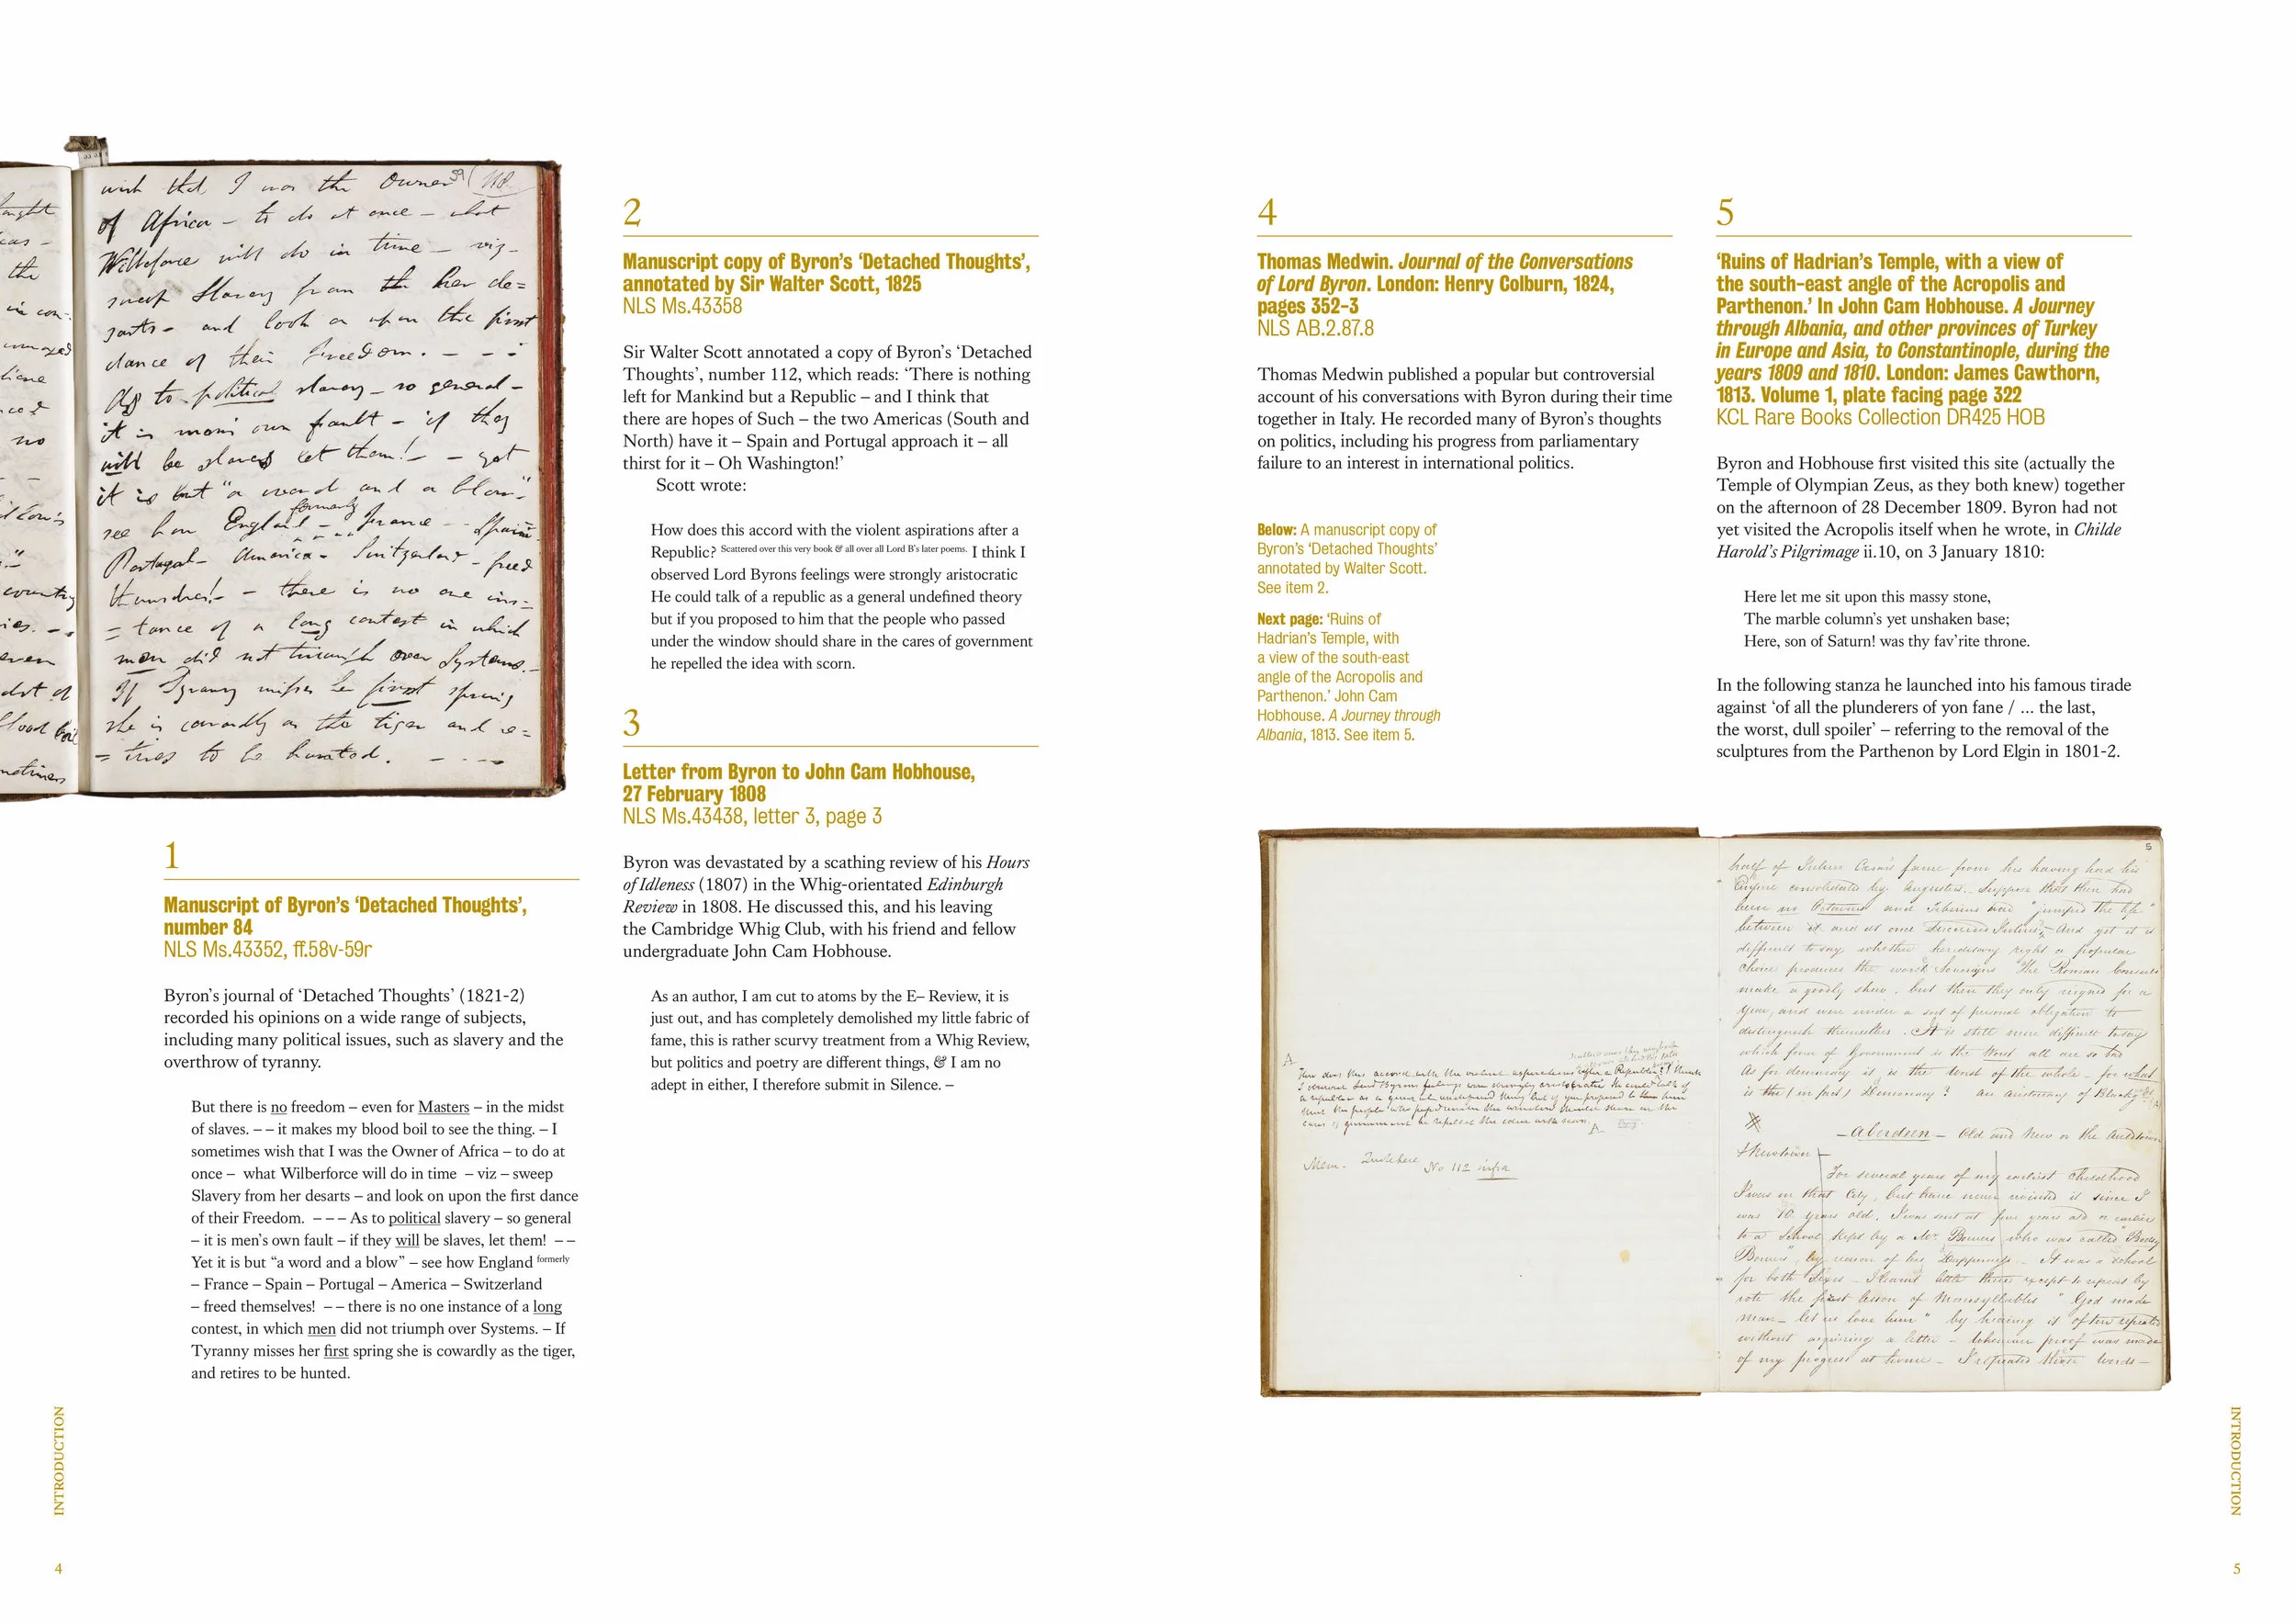 wish that I was the Owner
59
118
of Africa – to do at once – what
Wilberforce will do in time – viz –
sweep Slavery from her de=
sarts – and look on upon the first
dance of their Freedom. – – –
As to political slavery – so general –
it is men's own fault – if they
will be slaves let them! – – yet
it is but "a word and a blow" –
see how England formerly – France – Spain –
Portugal – America – Switzerland – freed
themselves! – there is no one ins=
=tance of a long contest in which
men did not triumph over Systems. –
If Tyranny misses her first spring
she is cowardly as the tiger and re=
=tires to be hunted. – – – –
the
no
country
even
1
Manuscript of Byron's 'Detached Thoughts',
number 84
NLS Ms.43352, ff.58v-59r
Byron's journal of 'Detached Thoughts' (1821-2)
recorded his opinions on a wide range of subjects,
including many political issues, such as slavery and the
overthrow of tyranny.
But there is no freedom – even for Masters – in the midst
of slaves. – – it makes my blood boil to see the thing. – I
sometimes wish that I was the Owner of Africa – to do at
once – what Wilberforce will do in time – viz – sweep
Slavery from her desarts – and look on upon the first dance
of their Freedom. – – – As to political slavery – so general
– it is men's own fault – if they will be slaves, let them! – –
Yet it is but "a word and a blow" – see how England formerly
– France – Spain – Portugal – America – Switzerland
– freed themselves! – – there is no one instance of a long
contest, in which men did not triumph over Systems. – If
Tyranny misses her first spring she is cowardly as the tiger,
and retires to be hunted.
2
Manuscript copy of Byron's 'Detached Thoughts',
annotated by Sir Walter Scott, 1825
NLS Ms.43358
Sir Walter Scott annotated a copy of Byron's 'Detached
Thoughts', number 112, which reads: 'There is nothing
left for Mankind but a Republic – and I think that
there are hopes of Such – the two Americas (South and
North) have it – Spain and Portugal approach it – all
thirst for it – Oh Washington!'
Scott wrote:
How does this accord with the violent aspirations after a
Republic? Scattered over this very book & all over all Lord B's later poems. I think I
observed Lord Byrons feelings were strongly aristocratic
He could talk of a republic as a general undefined theory
but if you proposed to him that the people who passed
under the window should share in the cares of government
he repelled the idea with scorn.
3
Letter from Byron to John Cam Hobhouse,
27 February 1808
NLS Ms.43438, letter 3, page 3
Byron was devastated by a scathing review of his Hours
of Idleness (1807) in the Whig-orientated Edinburgh
Review in 1808. He discussed this, and his leaving
the Cambridge Whig Club, with his friend and fellow
undergraduate John Cam Hobhouse.
As an author, I am cut to atoms by the E– Review, it is
just out, and has completely demolished my little fabric of
fame, this is rather scurvy treatment from a Whig Review,
but politics and poetry are different things, & I am no
adept in either, I therefore submit in Silence. –
INTRODUCTION
4
4
Thomas Medwin. Journal of the Conversations
of Lord Byron. London: Henry Colburn, 1824,
pages 352–3
NLS AB.2.87.8
Thomas Medwin published a popular but controversial
account of his conversations with Byron during their time
together in Italy. He recorded many of Byron's thoughts
on politics, including his progress from parliamentary
failure to an interest in international politics.
Below: A manuscript copy of
Byron's 'Detached Thoughts'
annotated by Walter Scott.
See item 2.
Next page: 'Ruins of
Hadrian's Temple, with
a view of the south-east
angle of the Acropolis and
Parthenon.' John Cam
Hobhouse. A Journey through
Albania, 1813. See item 5.
5
'Ruins of Hadrian's Temple, with a view of
the south-east angle of the Acropolis and
Parthenon.' In John Cam Hobhouse. A Journey
through Albania, and other provinces of Turkey
in Europe and Asia, to Constantinople, during the
years 1809 and 1810. London: James Cawthorn,
1813. Volume 1, plate facing page 322
KCL Rare Books Collection DR425 HOB
Byron and Hobhouse first visited this site (actually the
Temple of Olympian Zeus, as they both knew) together
on the afternoon of 28 December 1809. Byron had not
yet visited the Acropolis itself when he wrote, in Childe
Harold's Pilgrimage ii.10, on 3 January 1810:
Here let me sit upon this massy stone,
The marble column's yet unshaken base;
Here, son of Saturn! was thy fav'rite throne.
In the following stanza he launched into his famous tirade
against 'of all the plunderers of yon fane / ... the last,
the worst, dull spoiler' – referring to the removal of the
sculptures from the Parthenon by Lord Elgin in 1801-2.
A
How does this accord with the violent aspirations after a Republic? I think
I observed Lord Byrons feelings were strongly aristocratic He could talk of
a republic as a general undefined theory but if you proposed to him
that the people who passed under the window should share in the
cares of government he repelled the idea with scorn.
A
Mem. No 112 infra
5
half of Julius Cæsar's fame from his having had his
Empire consolidated by Augustus. – Suppose that there had
been no Octavius and Tiberius had "jumped the life"
between it and at once succeeded Julius; – And yet it is
difficult to say whether hereditary right or popular
choice produces the worst Sovereigns. The Roman Consuls
make a goodly show, but then they only reigned for a
Year, and were under a sort of personal obligation to
distinguish themselves. – It is still more difficult to say
which form of Government is the Worst all are so bad
As for democracy it is the worst of the whole – for what
is the (in fact) Democracy? an Aristocracy of Blackguards
– Aberdeen – Old and New or the Auldtoun
& Newtoun –
For several years of my earliest Childhood
I was in that City, but have never revisited it since I
was 10 years old. I was sent at five years old or earlier
to a School kept by a Mr. Bowers who was called "Bodsy
Bowers", by reason of his Dapperness. – It was a School
for both Sexes – I learnt little there except to repeat by
rote the first lesson of Monosyllables "God made
man – let us love him" by hearing it often repeated
without acquiring a letter – Whenever proof was made
of my progress at home – I repeated these words –
INTRODUCTION
5